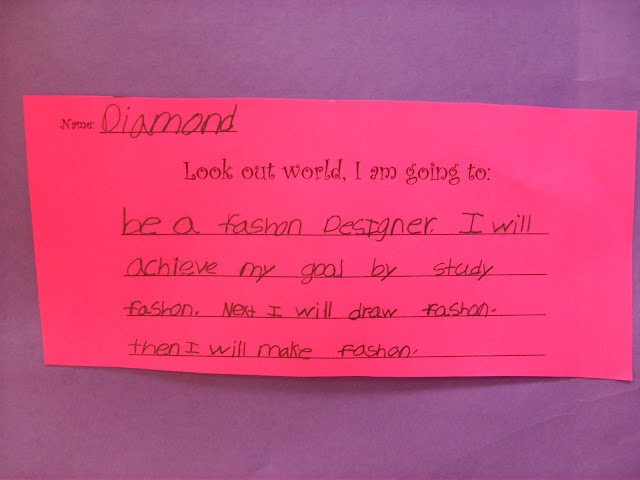 Name: Diamond
Look out world, I am going to:
be a fashon Designer. I will
achieve my goal by study
fashon. Next I will draw fashon.
then I will make fashon.